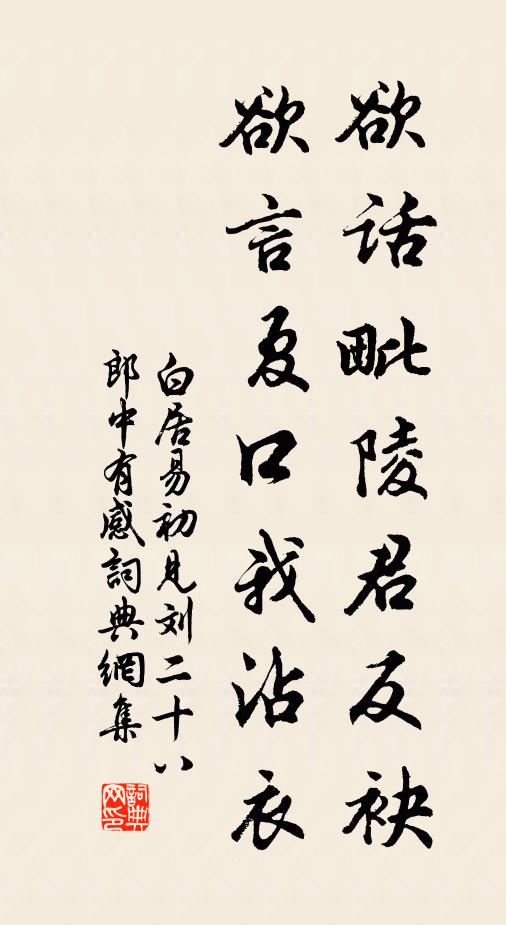 欲话毗陵君反袂
欲言夏口我沾衣
白居易初见刘二十八
郎中有感詞典網集
詞典
网印